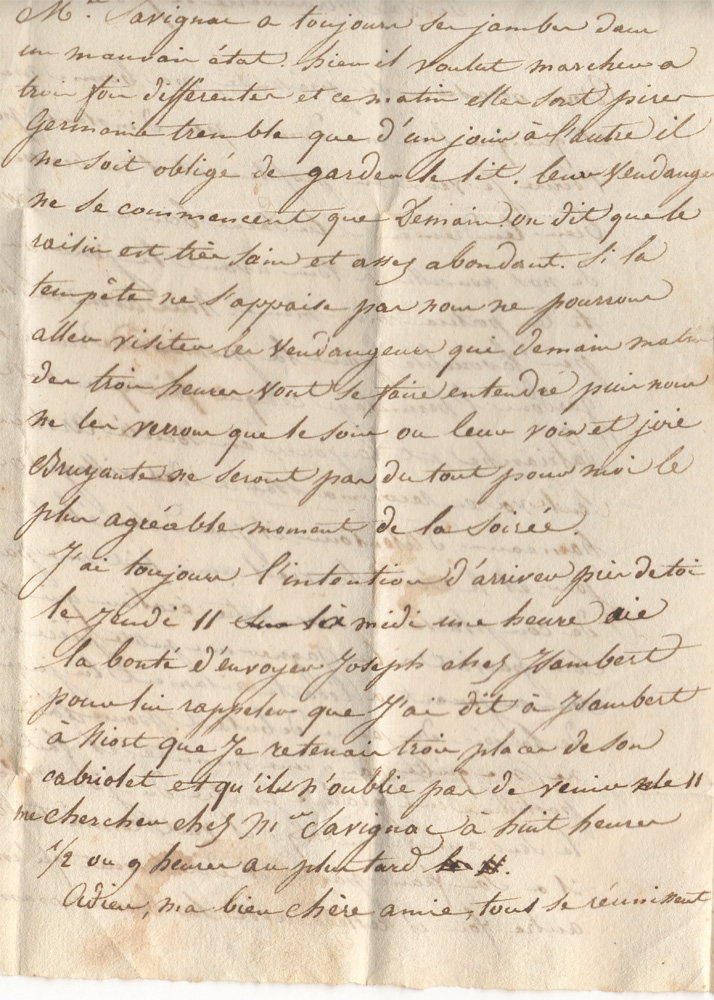 Mr. Savignac a toujours ses jambes dans
un mauvais état. hier il voulut marcher a
trois fois differentes et ce matin elles sont pires
Germanie tremble que d'un jour à l'autre il
ne soit obligé de garder le lit. leurs Vendanges
ne se commencent que Demain. on dit que le
raisin est très sain et assez abondant. Si la
tempête ne s'appaise pas nous ne pourrons
aller visiter les Vendangeurs qui demain matin
des trois heures vont se faire entendre puis nous
ne les verrons que le soir ou leurs voix et joie
Bruyante ne seront pas du tout pour moi le
plus agréable moment de la soirée.
J'ai toujours l'intention d'arriver près de toi
le Jeudi 11 midi une heure aie
la bonté d'envoyer Joseph chez Isambert
pour lui rappeler que J'ai dit à Isambert
à Niort que Je retenais trois places de son
cabriolet et qu'il n'oublie pas de venir le 11
me chercher chez Mr Savignac à huit heures
1/2 ou 9 heures au plus tard
Adieu, ma bien chère amie, tous se réunissent